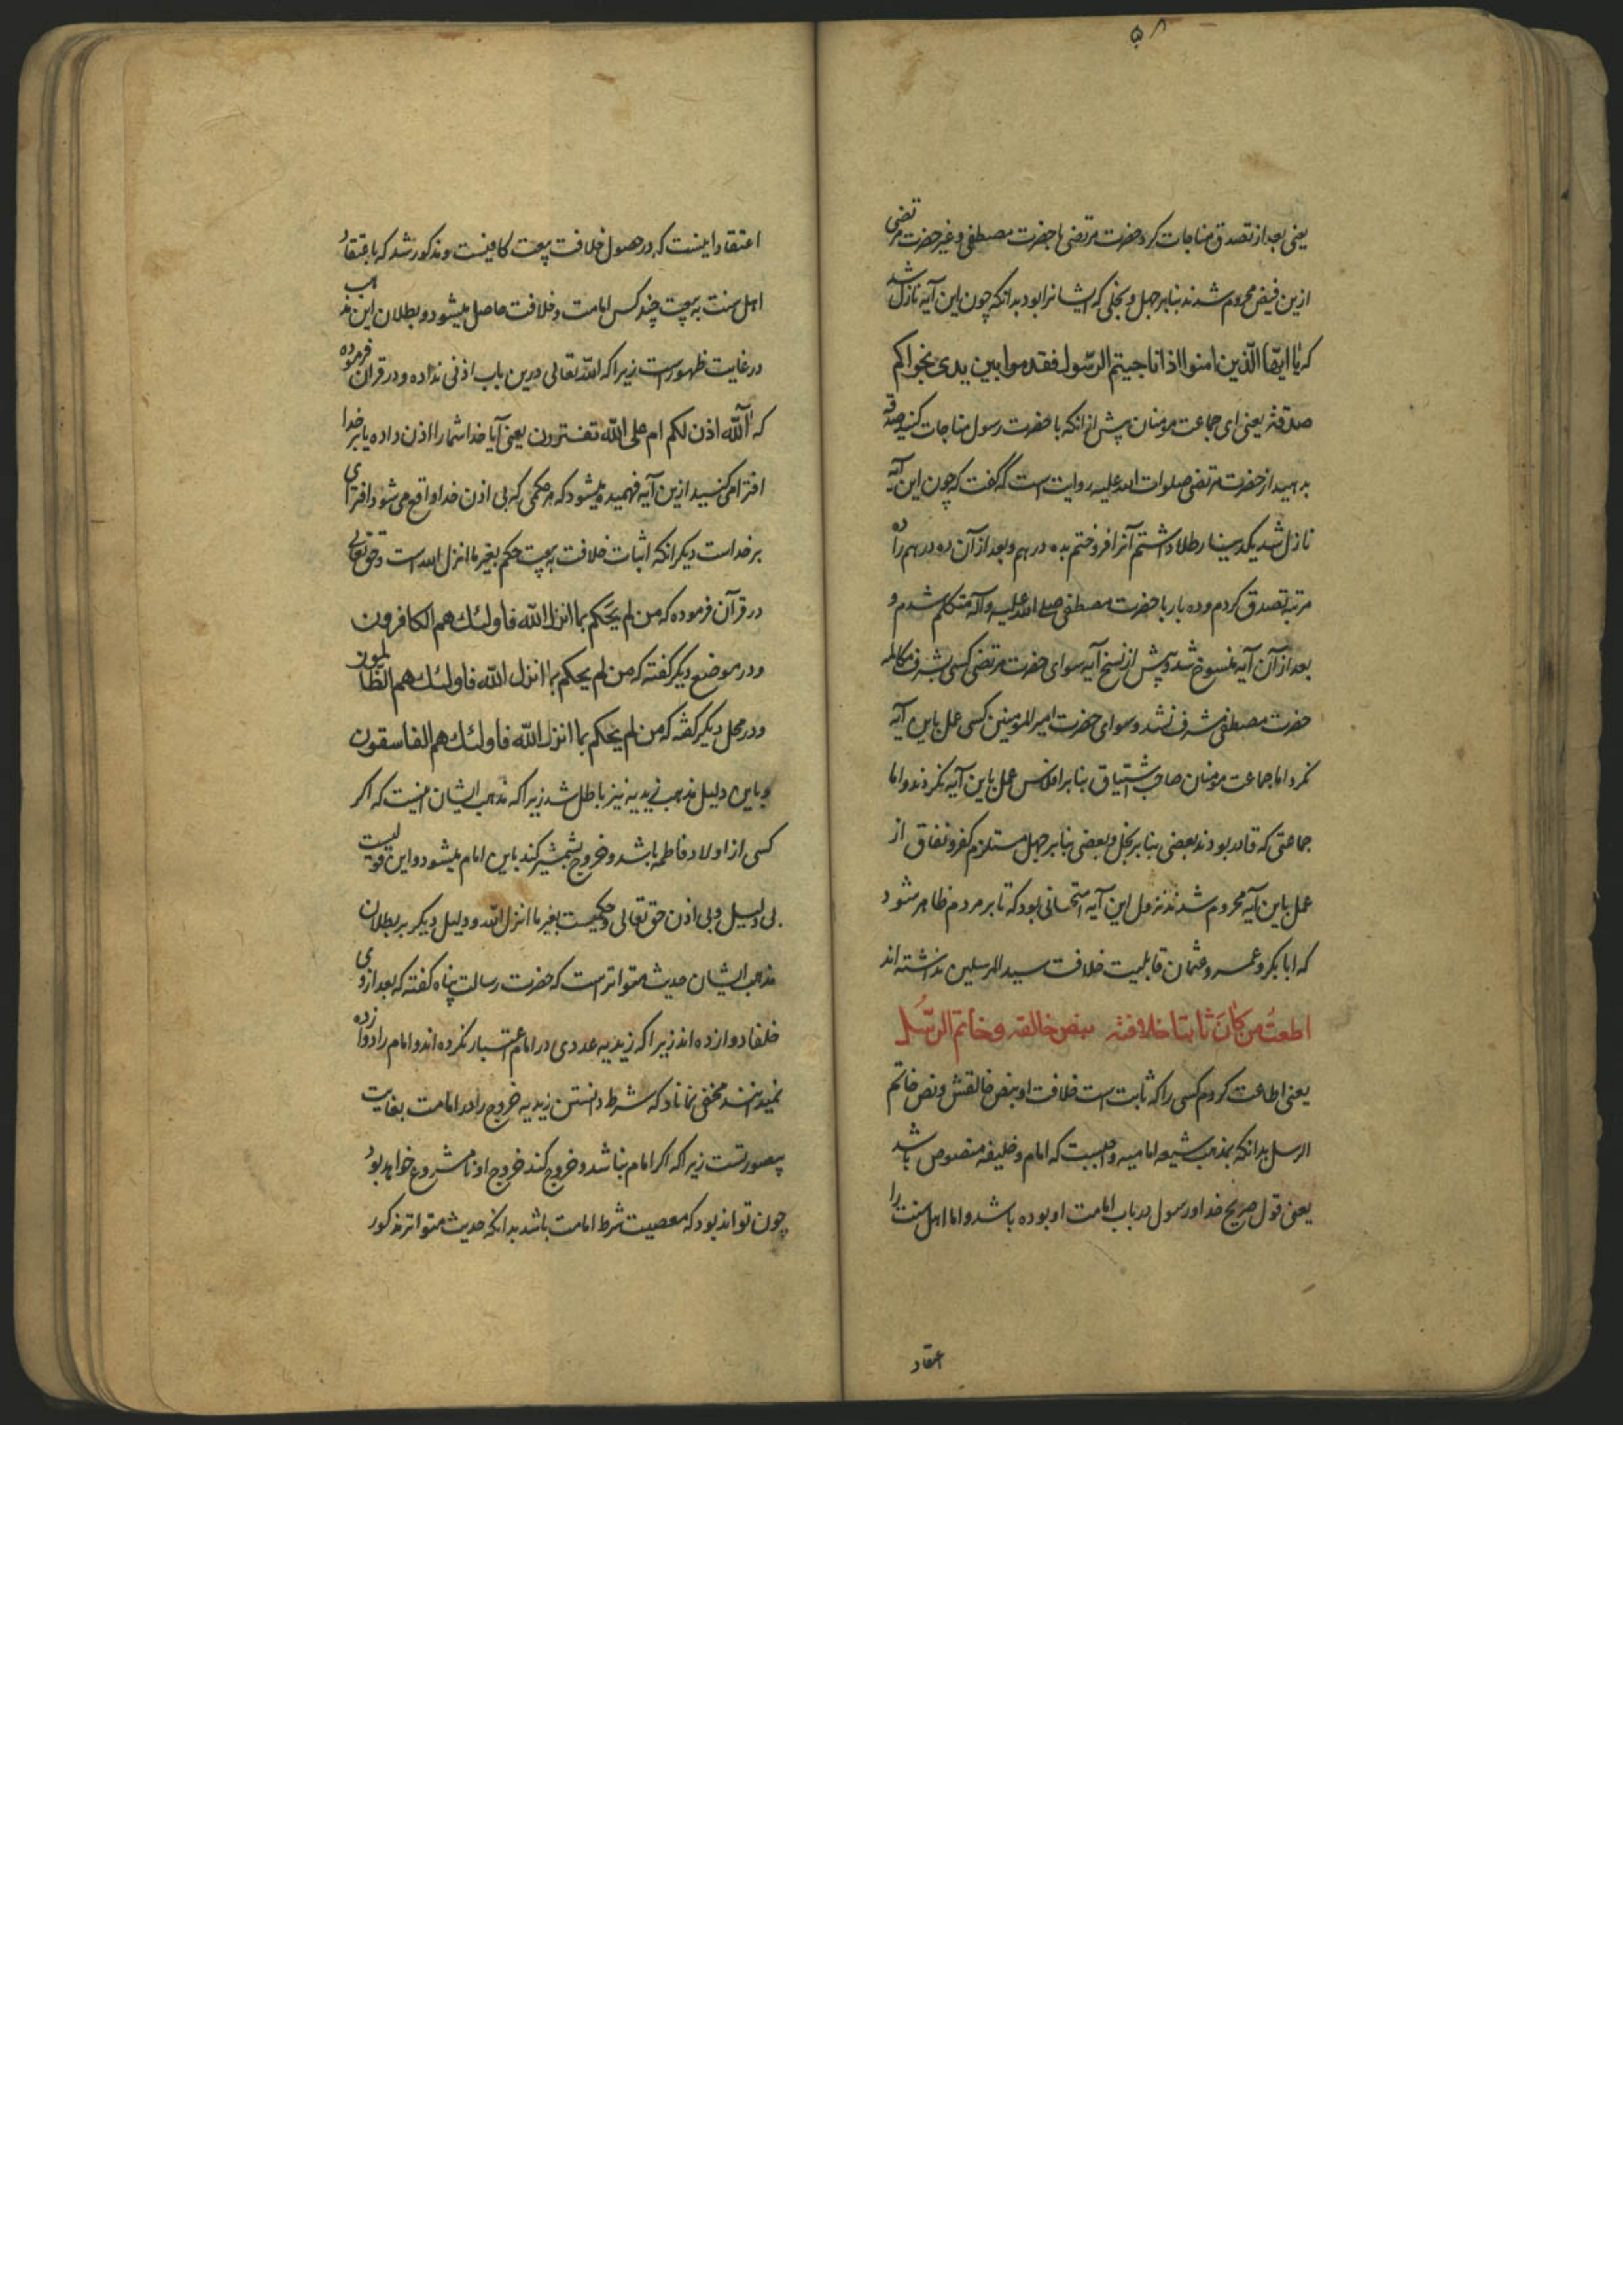 ۵۸
یعنی بعد از تصدق مناجات کرد حضرت مرتضی با حضرت مصطفی و غیر حضرت مرتضی
ازین فیض محروم شدند بنابر جهل و بخلی که ایشانرا بود بدانکه چون این آیه نازل شد
که یا ایها الذین امنوا اذا ناجیتم الرسول فقدموا بین یدی نجواکم
صدقة یعنی ای جماعت مومنان پیش از انکه با حضرت رسول مناجات کنید صدقه
بدهید از حضرت مرتضی صلوات الله علیه روایت است که گفت که چون این آیه
نازل شد یکدینار طلا داشتم آنرا فروختم بده درهم و بعد از آن ده درهم را ده
مرتبه تصدق کردم و ده بار با حضرت مصطفی صلی الله علیه وآله متکلم شدم و
بعد از آن آیه منسوخ شد و پیش از نسخ آیه سوای حضرت مرتضی کسی بشرف مکالمه
حضرت مصطفی مشرف نشد و سوای حضرت امیر المومنین کسی عمل باین آیه
نکرد اما جماعت مومنان صاحب اشتیاق بنابر افلاس عمل باین آیه نکردند و اما
جماعتی که قادر بودند بعضی بنابر بخل و بعضی بنابر جهل مستلزم کفر و نفاق از
عمل باین آیه محروم شدند نزول این آیه امتحانی بود که تا بر مردم ظاهر شود
که ابابکر و عمر و عثمان قابلیت خلافت سید المرسلین نداشته اند
اطعتُ من کانَ ثابتا خلافته بنص خالقه و خاتم الرسُل
یعنی اطاعت کردم کسی را که ثابت است خلافت او بنص خالقش و نص خاتم
الرسل بدانکه بمذهب شیعه امامیه واجبست که امام و خلیفه منصوص باشد
یعنی قول صریح خدا و رسول در باب امامت او بوده باشد و اما اهل سنت را
اعتقاد
اعتقاد اینست که در حصول خلافت بیعت کافیست و مذکور شد که باعتقاد
اهل سنت به بیعت چند کس امامت و خلافت حاصل میشود و بطلان این مذهب
در غایت ظهورست زیرا که الله تعالی درین باب اذنی نداده و در قرآن فرموده
که آلله اذن لکم ام علی الله تفترون یعنی آیا خدا شما را اذن داده یا بر خدا
افترا می کنید ازین آیه فهمیده میشود که هر حکمی که بی اذن خدا واقع می شود افترای
بر خداست دیگر انکه اثبات خلافت به بیعت حکم بغیر ما انزل الله است و حق تعالی
در قرآن فرموده که من لم یحکم بما انزل الله فاولئك هم الکافرون
و در موضع دیگر گفته که من لم یحکم بما انزل الله فاولئك هم الظالمون
و در محل دیگر گفته که من لم یحکم بما انزل الله فاولئك هم الفاسقون
و باین دلیل مذهب زیدیه نیز باطل شد زیرا که مذهب ایشان اینست که اگر
کسی از اولاد فاطمه باشد و خروج بشمشیر کند باین امام میشود و این قولیست
بی دلیل و بی اذن حق تعالی و حکمیست بغیر ما انزل الله و دلیل دیگر بر بطلان
مذهب ایشان حدیث متواترست که حضرت رسالت پناه گفته که بعد از وی
خلفا دوازده اند زیرا که زیدیه عددی در امام اعتبار نکرده اند و امام را دوازده
نمیدانند مخفی نماناد که شرط دانستن زیدیه خروج را در امامت بغایت
بیصورتست زیرا که اگر امام نباشد و خروج کند خروج او نامشروع خواهد بود
چون تواند بود که معصیت شرط امامت باشد بدانکه حدیث متواتر مذکور